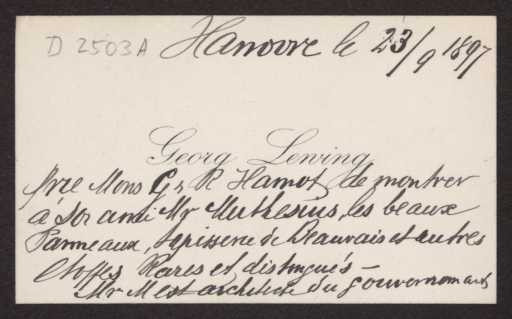 D 2503A Hanovre le 23/9 1897
Georg Lewing
prie Mons G & R Hamot de montrer
à son ami Mr Muthesius, les beaux
Panneaux, tapisserie de Beauvais et autres
étoffes Rares et distingués
Mr M est architecte du gouvernement